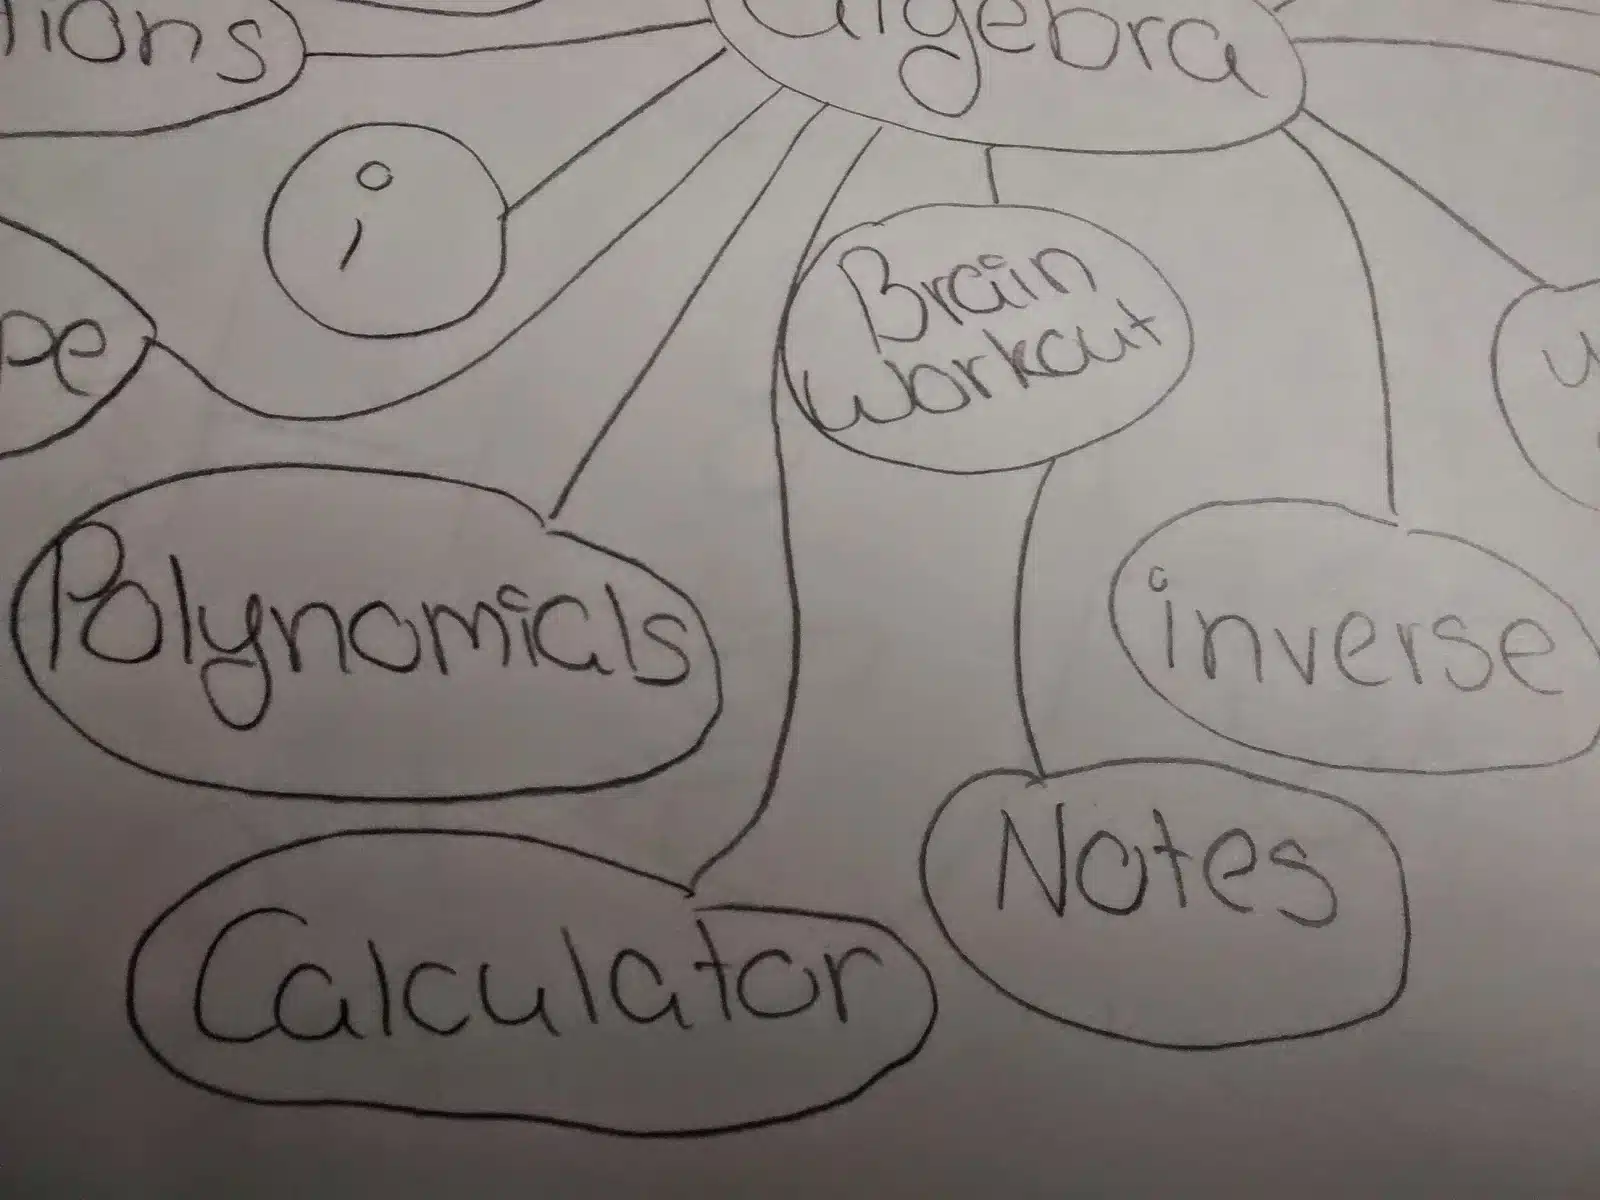 algebra
tions
i
pe
Brain
workout
Polynomials
inverse
Notes
Calculator